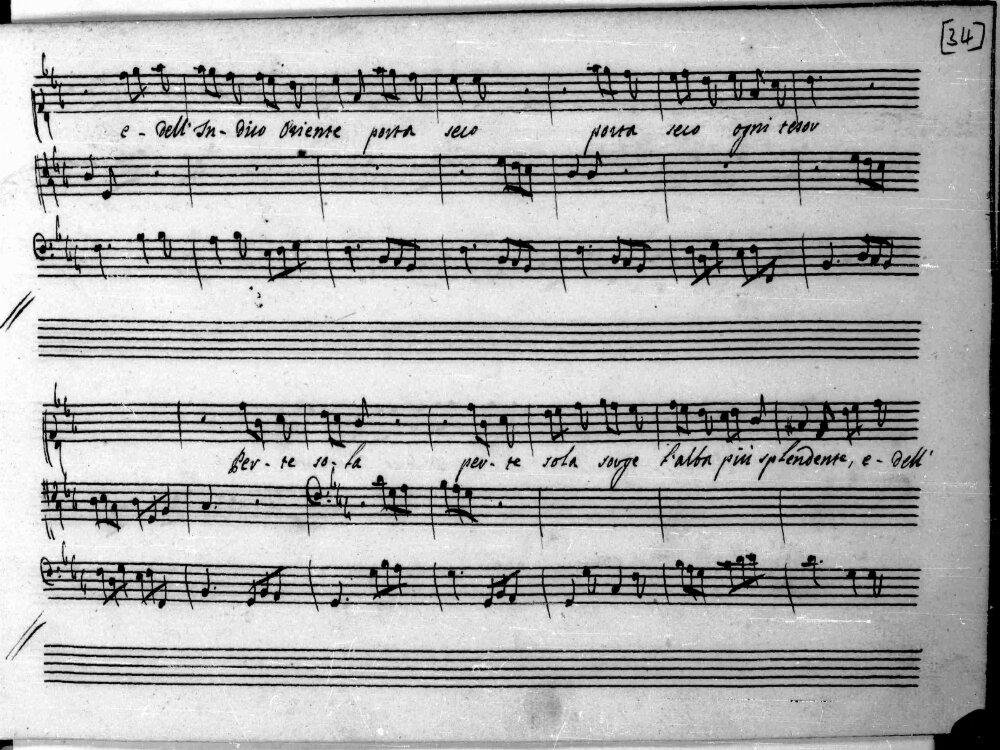 [34]
e - dell' In - dico Oriente porta seco porta seco ogni tesor
Per - te so - la per - te sola sorge l'alba più splendente, e - dell'